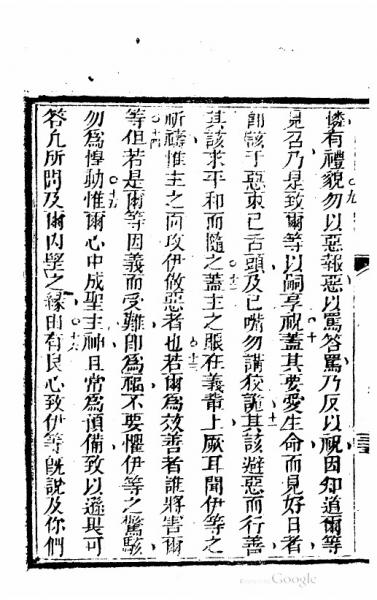 憐有禮貌勿以惡報惡以罵答罵乃反以祝因知道爾等
見召乃是致爾等以嗣享祝蓋其要愛生命而見好日者
卽該于惡束已舌頭及已嘴勿講狡詭其該避惡而行善
其該求平和而隨之蓋主之眼在義軰上厥耳聞伊等之
祈禱惟主之面攻伊做惡者也若爾爲效善者誰將害爾
等但若是爾等因義而受難卽爲福不要懼伊等之驚駭
勿爲悼動惟爾心中成聖主神且常爲預備致以遜畏可
答凡所問及爾內望之緣由有良心致伊等旣說及你們
Google